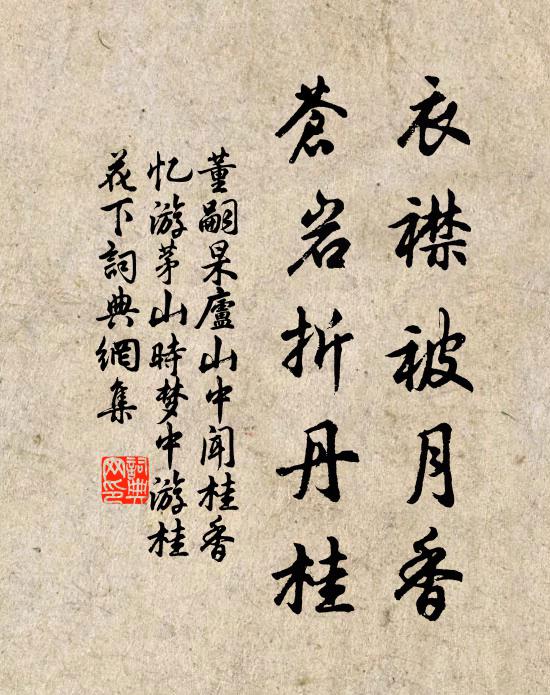 衣襟被月香
蒼岩折丹桂
董嗣杲廬山中闻桂香
忆游茅山時梦中游桂
花下詞典網集
詞典网印